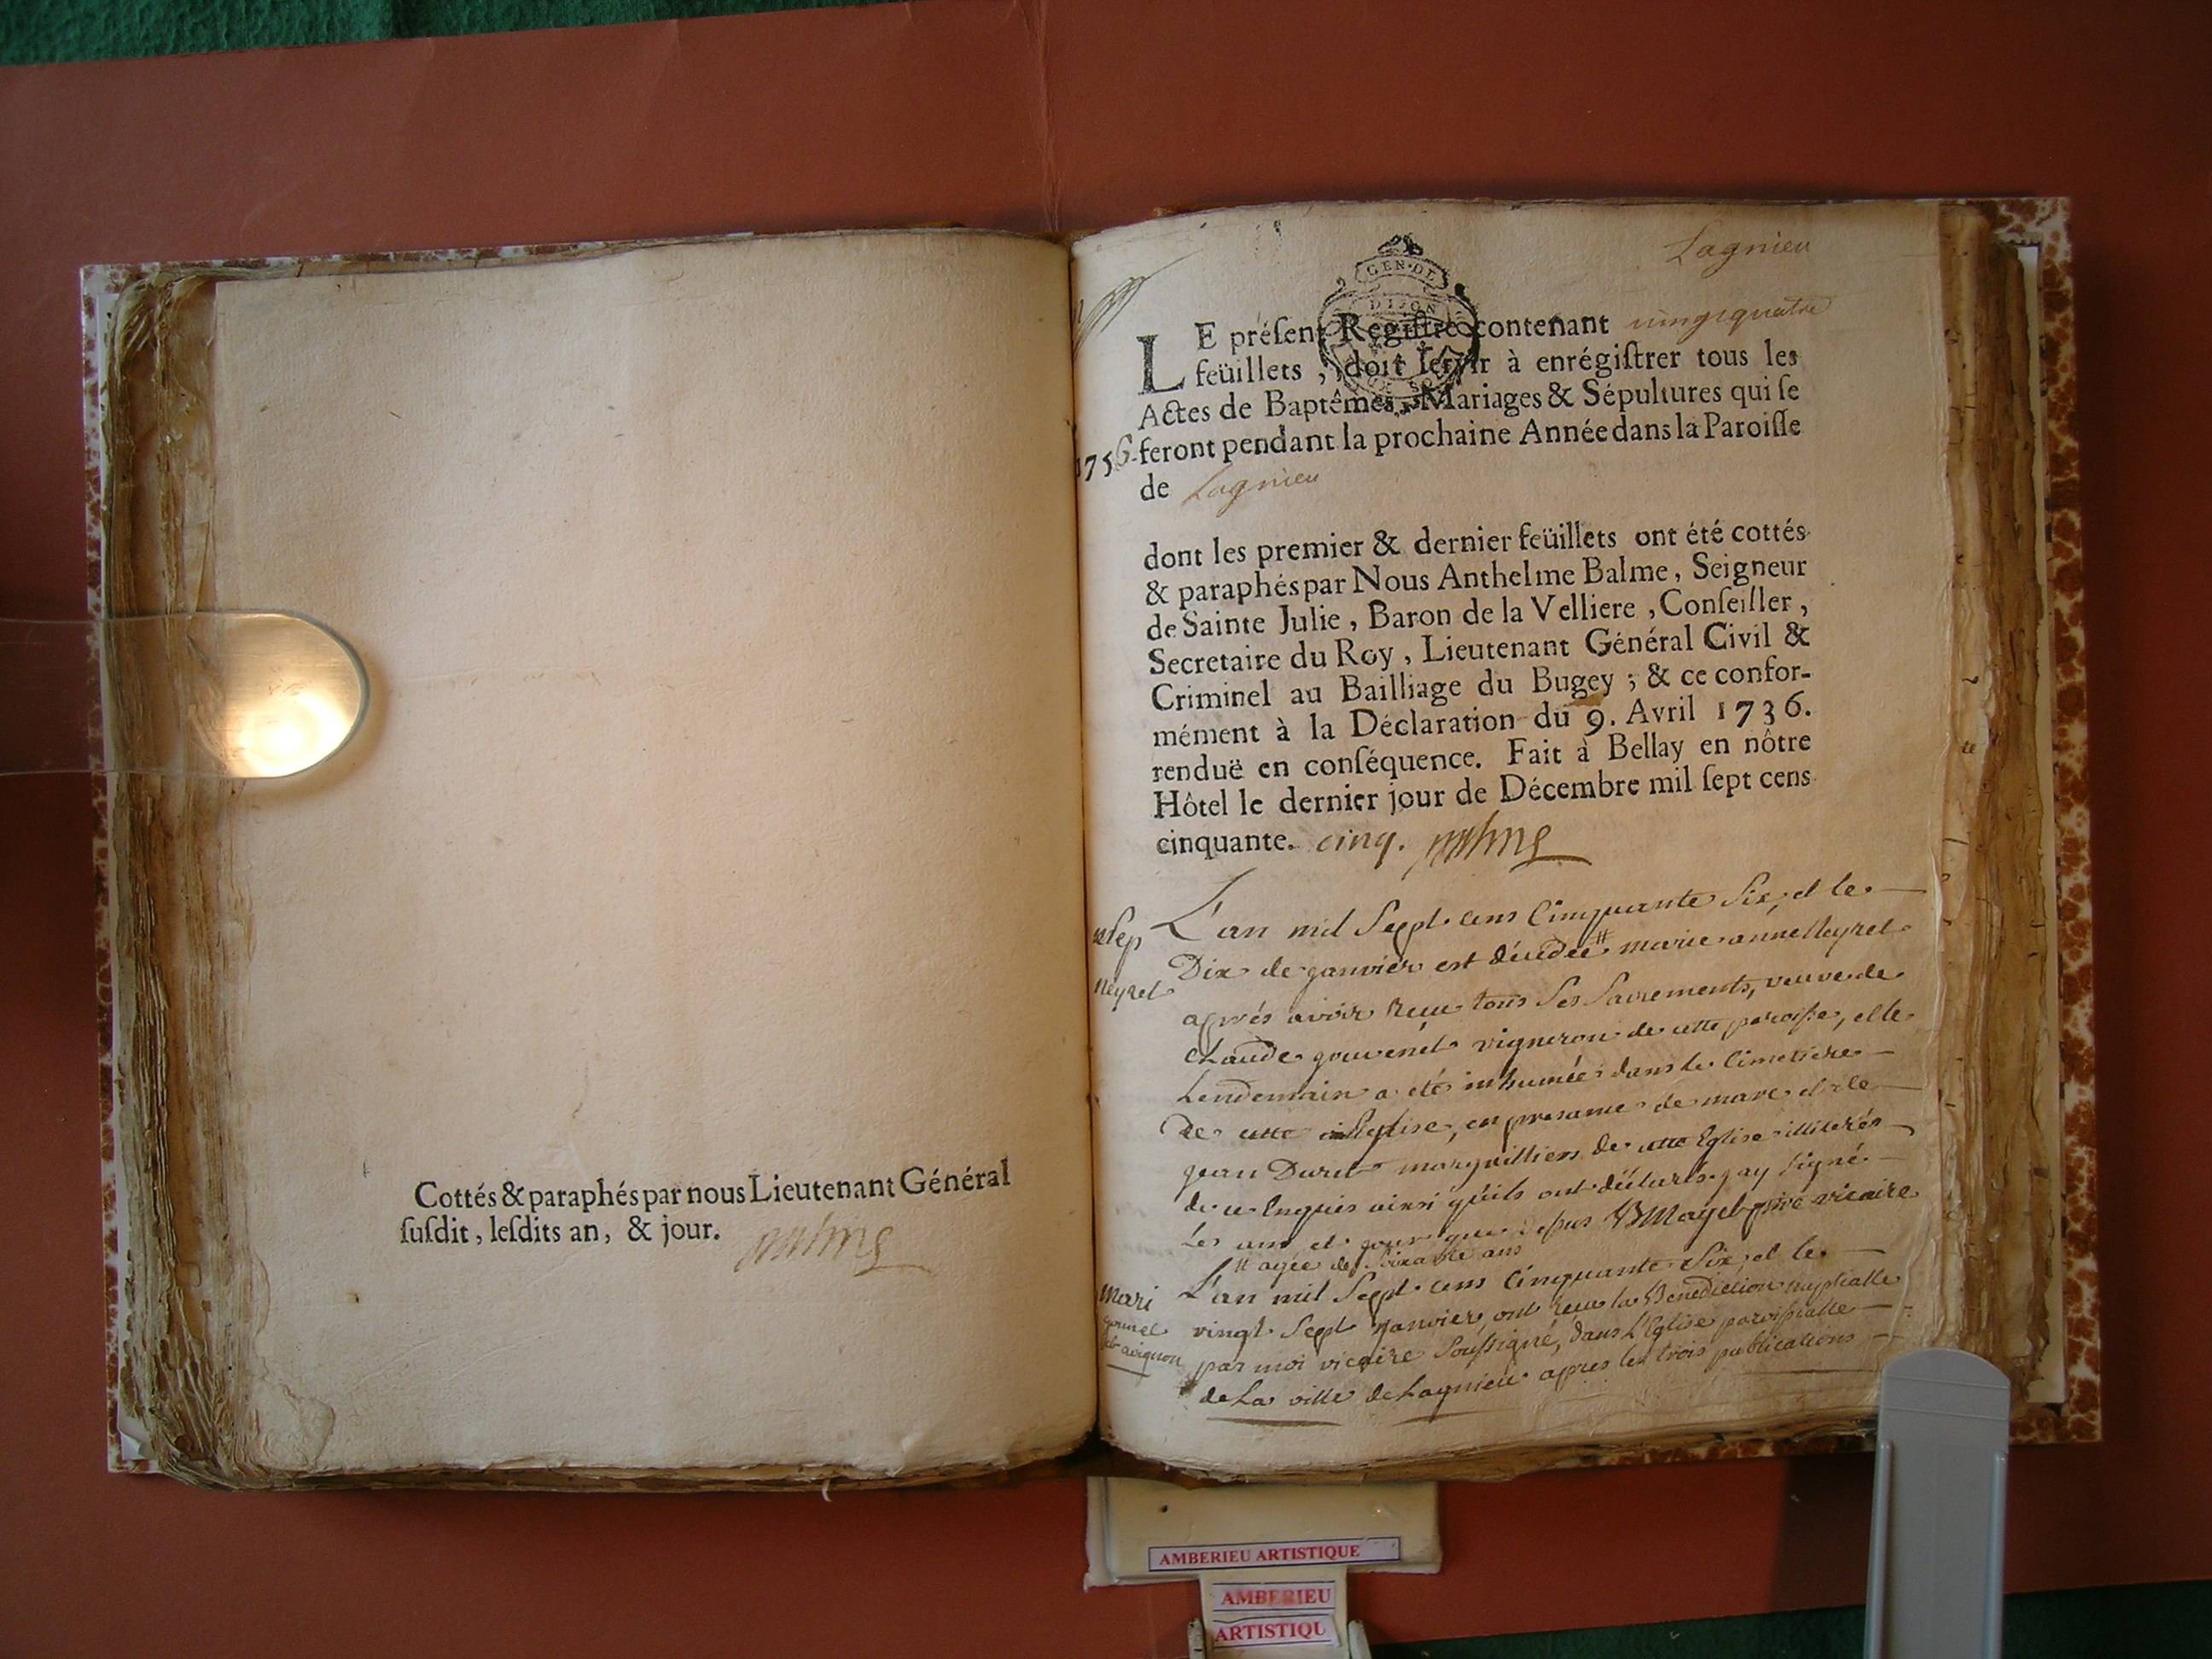 Cottés & paraphés par nous Lieutenant Général
ſuſdit, leſdits an, & jour.
Lagnieu
GEN·DE
DIJON
LE préſent Regiſtre contenant vingt quatre
feüillets, doit ſervir à enrégiſtrer tous les
Actes de Baptêmes, Mariages & Sépultures qui ſe
1756. feront pendant la prochaine Année dans la Paroiſſe
de Lagnieu
dont les premier & dernier feüillets ont été cottés
& paraphés par Nous Anthelme Balme, Seigneur
de Sainte Julie, Baron de la Velliere, Conſeiller,
Secretaire du Roy, Lieutenant Général Civil &
Criminel au Bailliage du Bugey; & ce confor-
mément à la Déclaration du 9. Avril 1736.
renduë en conſéquence. Fait à Bellay en nôtre
Hôtel le dernier jour de Décembre mil ſept cens
cinquante. cinq.
L'an mil Sept cens Cinquante Six, et le
Dix de janvier est décédée # marie anne Neyret
Neyret
après avoir Reçu tous Ses Sacrements, veuve de
Claude gouvenet vigneron de cette paroiſſe, et le
Lendemain a été inhumée dans le Cimetiere
De cette Eglise, en presance de marc et de
jean Duret marguilliers de cette Eglise illiterés
de ce Enquis ainsi quils ont déclarés jay Signé
Les an et jour que depus vicaire
# agée de Soixante ans
mari L'an mil Sept cens Cinquante Six, et le
vingt Sept Janvier, ont reçu la Benediction nuptialle
et avignon par moi vicaire Souſſigné, dans L'Eglise paroiſſialle
de La ville de Lagnieu apres les trois publications
AMBERIEU ARTISTIQUE
AMBERIEU
ARTISTIQU